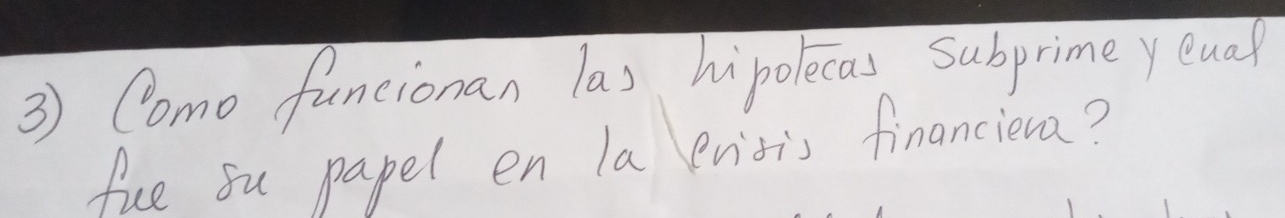 3) Como funcionan las hipotecas subprime y cual
fue su papel en la crisis financiera?